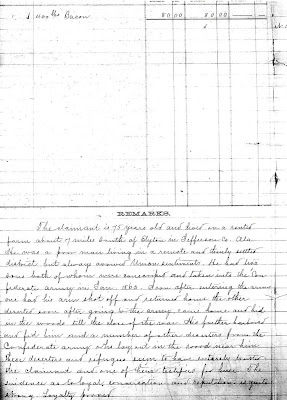 5. 400 lbs Bacon 80 00 80 00
REMARKS.
The claimant is 75 years old and lived on a rented
farm about 7 miles South of Elyton in Jefferson Co. Ala.
He was a poor man living in a remote and thinly settled
district but always avowed Union sentiments. He had two
sons both of whom were conscripted and taken into the Con
federate army in Jan. 1863. Soon after entering the army
one had his arm shot off and returned home the other
deserted soon after going to the army, came home and hid
in the woods till the close of the war. His father harbored
and fed him and a number of other deserters from the
Confederate army who lay out in the woods near him
these deserters and refugees seem to have entirely trusted
the claimant and one of them testifies for him. The
evidence as to loyal conversation and reputation is quite
strong. Loyalty proved.